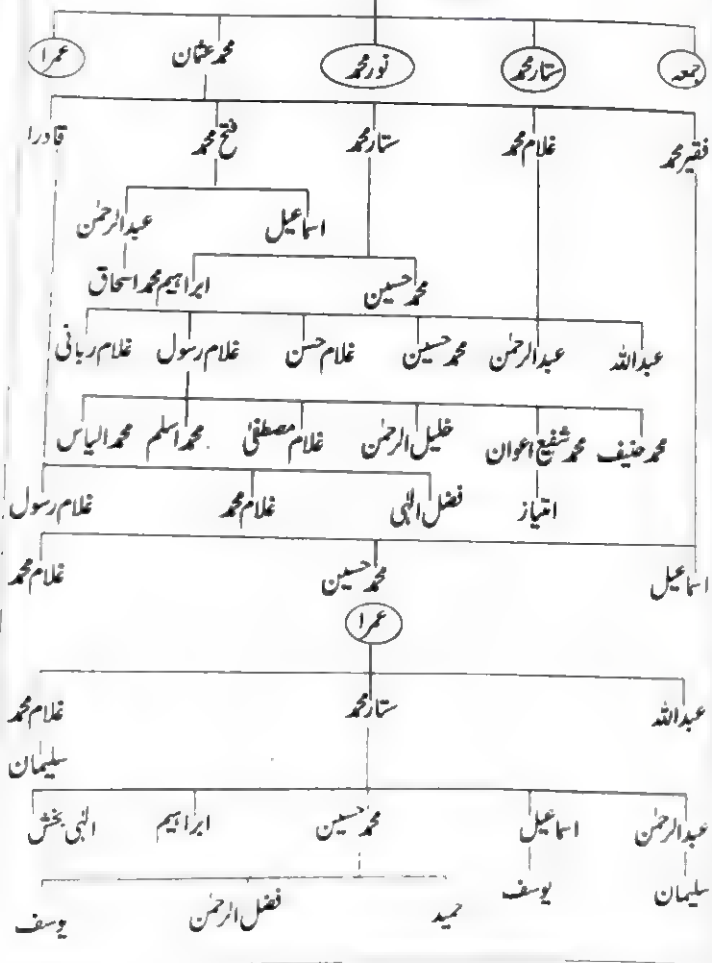 جمعہ ستار محمد نور محمد محمد عثمان عمرا
فقیر محمد غلام محمد ستار محمد فتح محمد قادرا
اسماعیل عبدالرحمٰن
محمد حسین ابراہیم محمد اسحاق
عبداللہ عبدالرحمٰن محمد حسین غلام حسن غلام رسول غلام ربانی
محمد حنیف محمد شفیع اعوان خلیل الرحمٰن غلام مصطفیٰ محمد اسلم محمد الیاس
امتیاز فضل الٰہی غلام محمد غلام رسول
اسماعیل محمد حسین غلام محمد
عمرا
عبداللہ ستار محمد غلام محمد
سلیمان
عبدالرحمٰن اسماعیل محمد حسین ابراہیم الٰہی بخش
سلیمان یوسف حمید فضل الرحمٰن یوسف